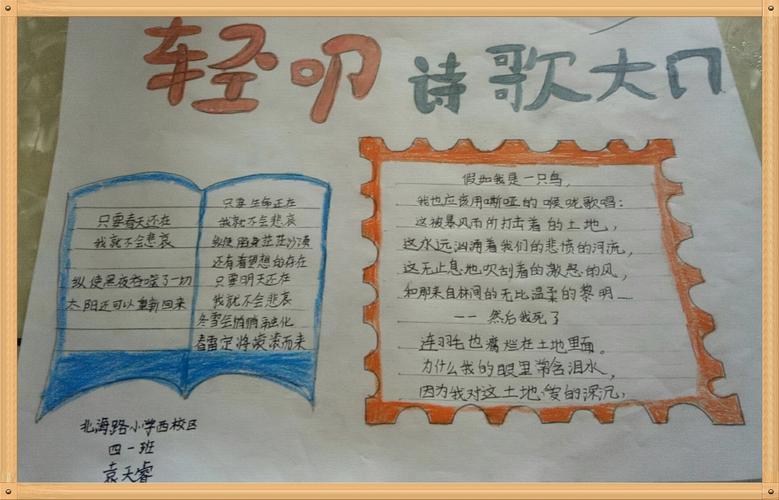 轻叩诗歌大门
只要春天还在
我就不会悲哀
纵使黑夜吞噬了一切
太阳还可以重新回来
只要生命还在
我就不会悲哀
纵使陷身茫茫沙漠
还有希望的存在
只要明天还在
我就不会悲哀
冬雪会悄悄融化
春雷定将滚滚而来
假如我是一只鸟，
我也应该用嘶哑的喉咙歌唱：
这被暴风雨所打击着的土地，
这永远汹涌着我们的悲愤的河流，
这无止息地吹刮着的激怒的风，
和那来自林间的无比温柔的黎明——
——然后我死了
连羽毛也腐烂在土地里面。
为什么我的眼里常含泪水，
因为我对这土地爱的深沉，
北海路小学西校区
四一班
袁天睿